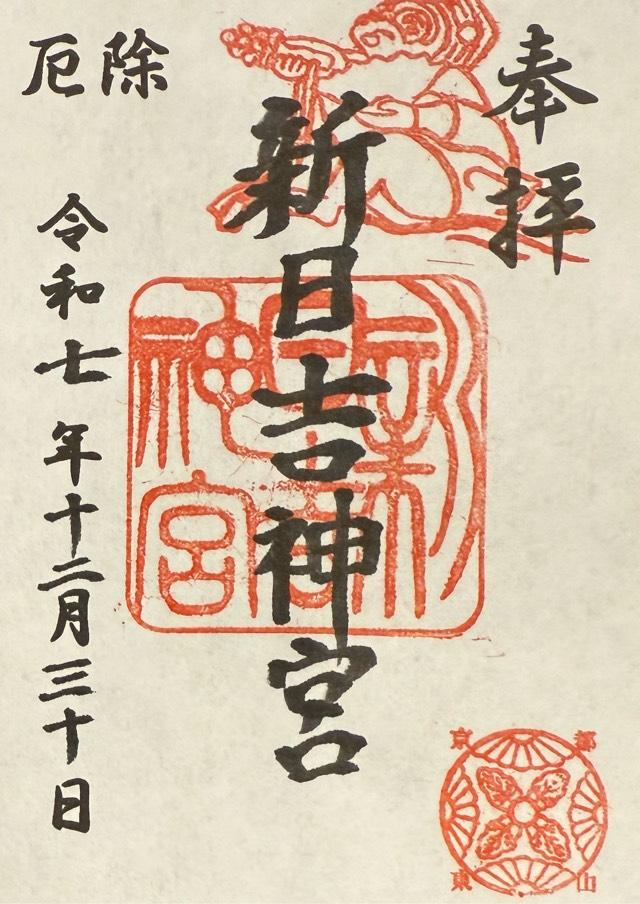 奉拝
新日吉神宮
厄除
令和七年十二月三十日
新日吉神宮
京都
東山